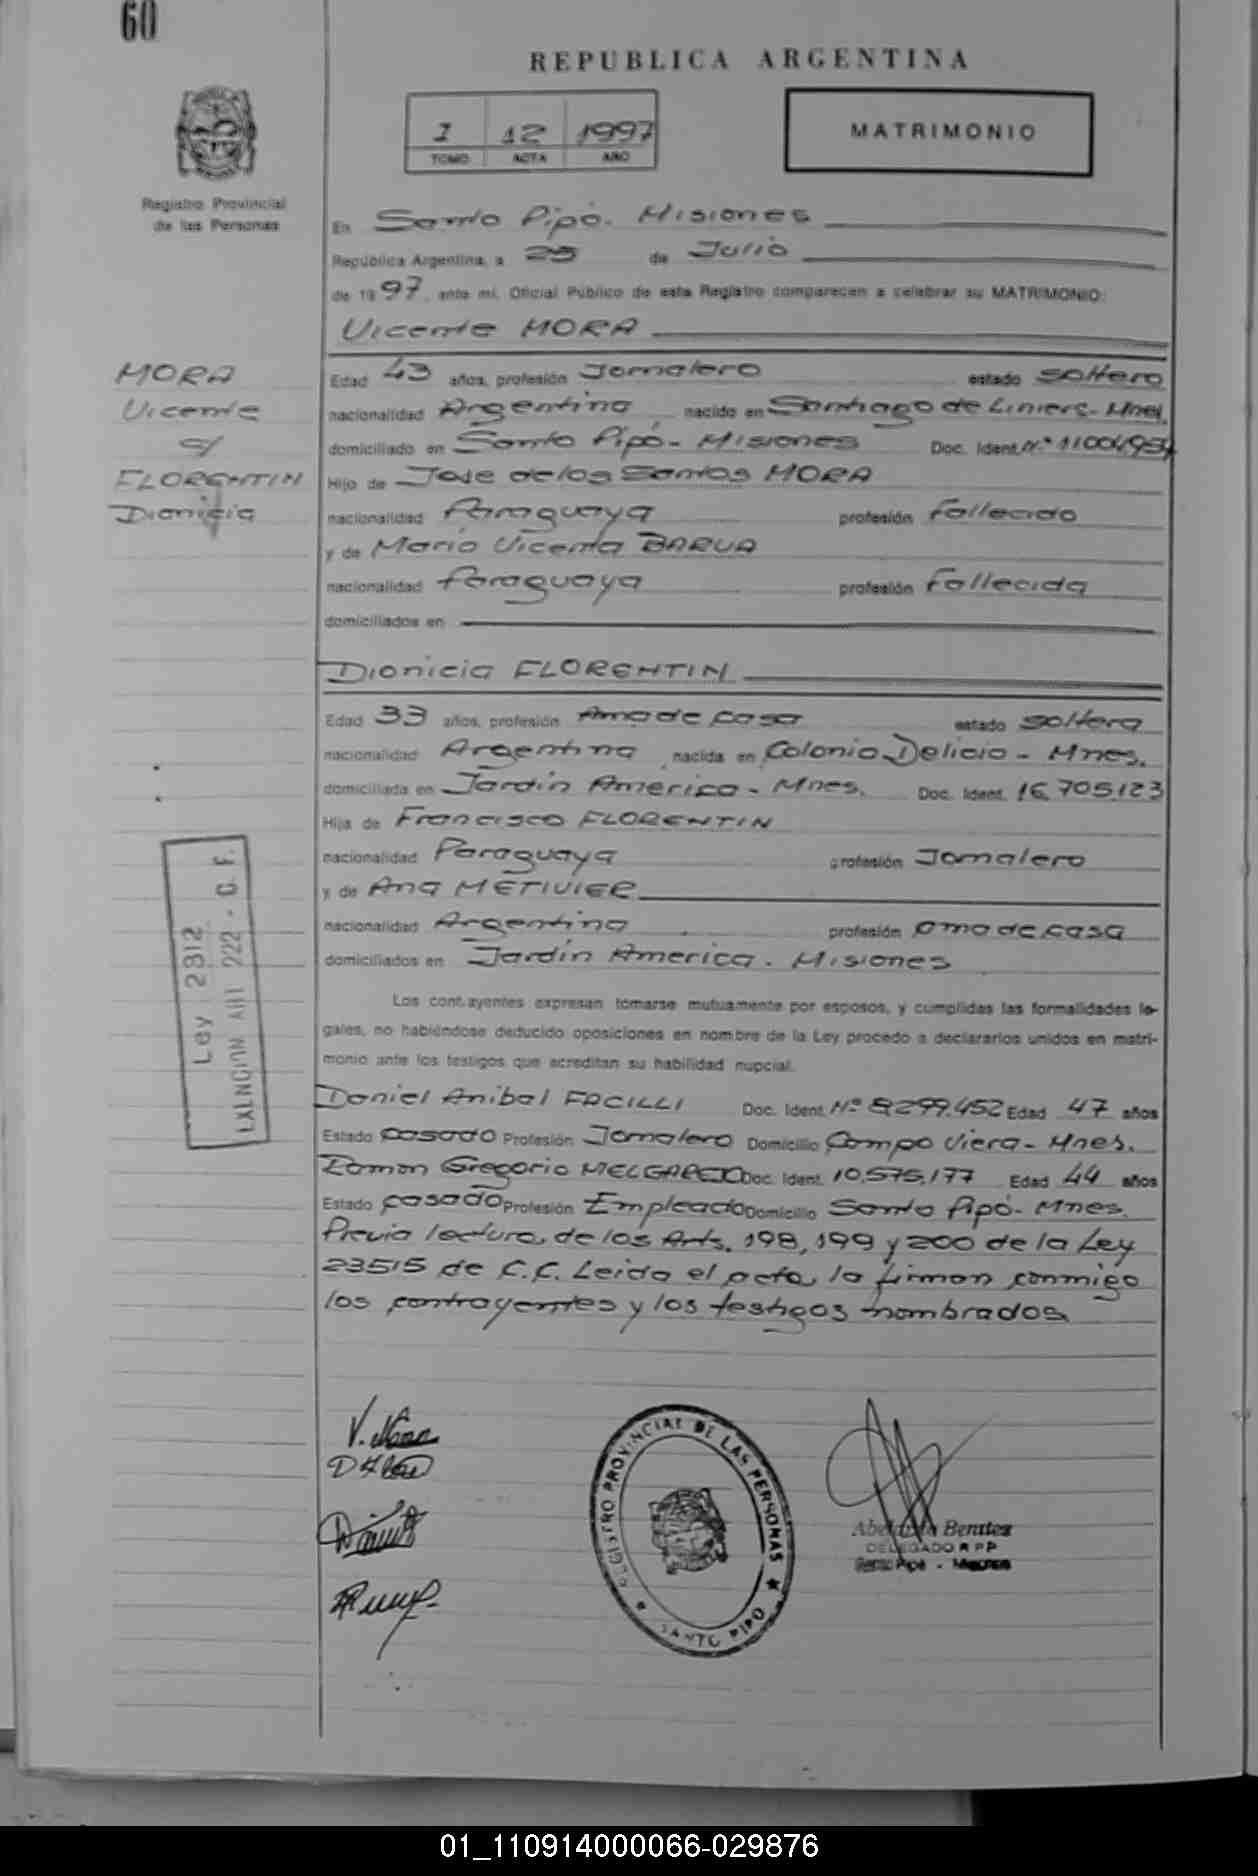 60
REPUBLICA ARGENTINA
I 12 1997
TOMO ACTA AÑO
MATRIMONIO
Registro Provincial
de las Personas
En Santo Pipó - Misiones
República Argentina, a 25 de Julio
de 1997, ante mí, Oficial Público de esta Registro comparecen a celebrar su MATRIMONIO:
Vicente MORA
MORA
Vicente
c/
FLORENTIN
Dionicia
Edad 43 años, profesión Jornalero estado soltero
nacionalidad Argentina nacido en Santiago de Liniers - Mnes.
domiciliado en Santo Pipó - Misiones Doc. Ident. Nº 11004954
Hijo de Jose de los Santos MORA
nacionalidad Paraguaya profesión fallecido
y de Maria Vicenta BARUA
nacionalidad Paraguaya profesión Fallecida
domiciliados en
Dionicia FLORENTIN
Edad 33 años, profesión Ama de casa estado soltera
nacionalidad Argentina nacida en Colonia Delicia - Mnes.
domiciliada en Jardín América - Mnes. Doc. Ident. 16.705.123
Hija de Francisco FLORENTIN
nacionalidad Paraguaya profesión Jornalero
y de Ana METIVIER
nacionalidad Argentina profesión ama de casa
domiciliados en Jardín America - Misiones
Ley 2312
EXENCION ART 222 - C. F.
Los contrayentes expresan tomarse mutuamente por esposos, y cumplidas las formalidades le-
gales, no habiéndose deducido oposiciones en nombre de la Ley procedo a declararlos unidos en matri-
monio ante los testigos que acreditan su habilidad nupcial.
Daniel Anibal FACILLI Doc. Ident. Nº 8.299.452 Edad 47 años
Estado casado Profesión Jornalero Domicilio Campo Viera - Mnes.
Ramon Gregorio MELGAREJO Doc. Ident. 10.575.177 Edad 44 años
Estado casado Profesión Empleado Domicilio Santo Pipó - Mnes.
Previa lectura de los Arts. 198, 199 y 200 de la Ley
23515 de C.C. Leida el acta, la firman conmigo
los contrayentes y los testigos nombrados
V. Mora
REGISTRO PROVINCIAL DE LAS PERSONAS
SANTO PIPO
Benitez
DELEGADO R P P
Santo Pipó - Misiones
01_110914000066-029876